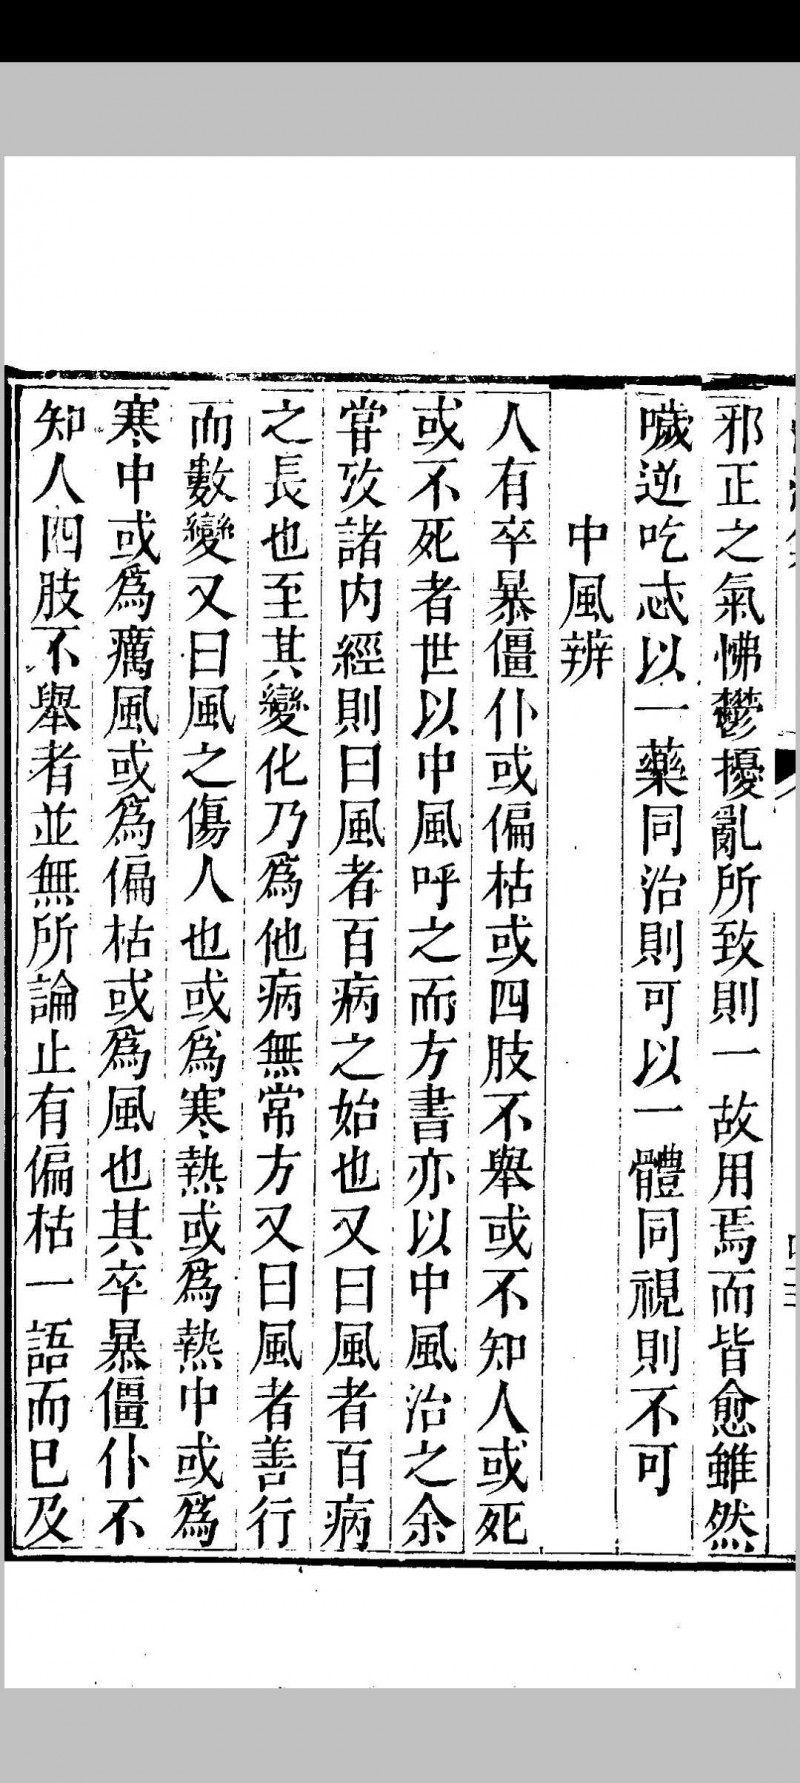 邪正之氣怫鬱擾亂所致則一故用焉而皆愈雖然
噦逆吃忒以一藥同治則可以一體同視則不可
中風辨
人有卒暴僵仆或偏枯或四肢不舉或不知人或死
或不死者世以中風呼之而方書亦以中風治之余
甞攷諸内經則曰風者百病之始也又曰風者百病
之長也至其變化乃爲他病無常方又曰風者善行
而數變又曰風之傷人也或爲寒熱或爲熱中或爲
寒中或爲癘風或爲偏枯或爲風也其卒暴僵仆不
知人四肢不舉者並無所論止有偏枯一語而已及